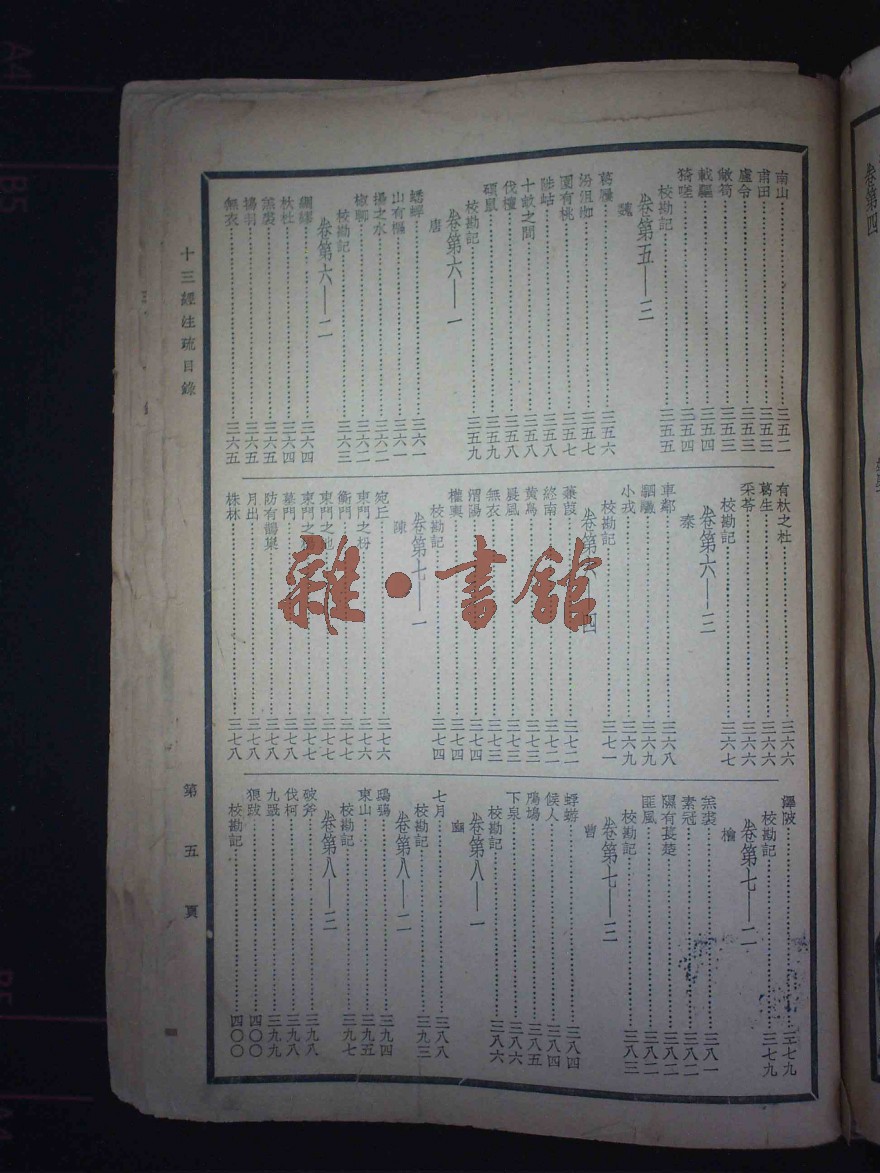 南山……三五二
甫田……三五三
盧令……三五三
敝笱……三五三
載驅……三五四
猗嗟……三五四
校勘記……三五五
卷第五——三
魏
葛屨……三五六
汾沮洳……三五七
園有桃……三五七
陟岵……三五八
十畝之間……三五八
伐檀……三五八
碩鼠……三五九
校勘記……三五九
卷第六——一
唐
蟋蟀……三六一
山有樞……三六一
揚之水……三六二
椒聊……三六二
校勘記……三六三
卷第六——二
綢繆……三六四
杕杜……三六四
羔裘……三六五
鴇羽……三六五
無衣……三六五
有杕之杜……三六六
葛生……三六六
采苓……三六六
校勘記……三六七
卷第六——三
秦
車鄰……三六八
駟驖……三六九
小戎……三六九
校勘記……三七一
卷第六——四
蒹葭……三七二
終南……三七二
黃鳥……三七三
晨風……三七三
無衣……三七三
渭陽……三七四
權輿……三七四
校勘記……三七四
卷第七——一
陳
宛丘……三七六
東門之枌……三七六
衡門……三七七
東門之池……三七七
東門之……三七七
墓門……三七八
防有鵲巢……三七八
月出……三七八
株林……三七八
澤陂……三七九
校勘記……三七九
卷第七——二
檜
羔裘……三八一
素冠……三八二
隰有萇楚……三八二
匪風……三八二
校勘記……三八三
卷第七——三
曹
蜉蝣……三八四
候人……三八四
鳲鳩……三八五
下泉……三八六
校勘記……三八六
卷第八——一
豳
七月……三八八
校勘記……三九三
卷第八——二
鴟鴞……三九四
東山……三九五
校勘記……三九七
卷第八——三
破斧……三九八
伐柯……三九八
九罭……三九九
狼跋……四〇〇
校勘記……四〇〇
十三經注疏目錄
第五頁
卷第四
雜·書館